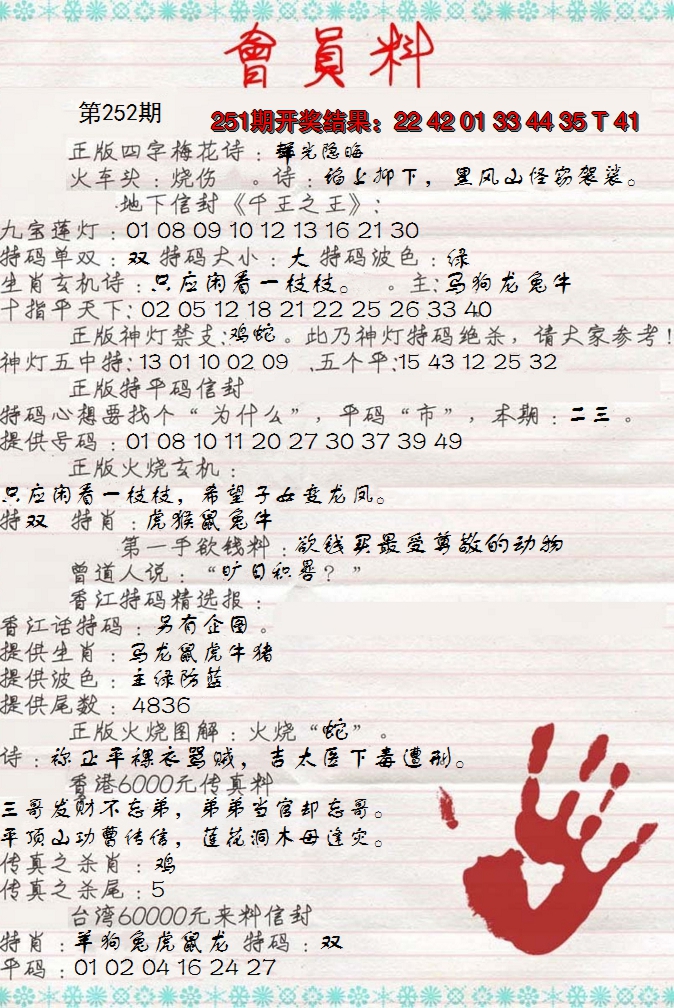 會員料
第252期
251期开奖结果：22 42 01 33 44 35 T 41
正版四字梅花诗：韬光隐晦
火车头：烧伤 。诗：焰上抑下，黑风山怪窃袈裟。
·地下信封《千王之王》：
九宝莲灯：01 08 09 10 12 13 16 21 30
特码单双：双 特码大小：大 特码波色：绿
生肖玄机诗：只应闲看一枝枝。 。主：马狗龙兔牛
十指平天下：02 05 12 18 21 22 25 26 33 40
正版神灯禁支：鸡蛇。此乃神灯特码绝杀，请大家参考！
神灯五中特：13 01 10 02 09 .五个平：15 43 12 25 32
正版特平码信封
特码心想要找个“为什么”，平码“市”，本期：二三。
提供号码：01 08 10 11 20 27 30 37 39 49
正版火烧玄机：
只应闲看一枝枝，希望子女变龙凤。
特双 特肖：虎猴鼠兔牛
第一手欲钱料：欲钱买最受尊敬的动物
曾道人说：“旷日积晷？”
香江特码精选报：
香江话特码：另有企图。
提供生肖：马龙鼠虎牛猪
提供波色：主绿防蓝
提供尾数：4836
正版火烧图解：火烧“蛇”。
诗：祢正平裸衣骂贼，吉太医下毒遭刑。
香港6000元传真料
三哥发财不忘弟，弟弟当官却忘哥。
平顶山功曹传信，莲花洞木母逢灾。
传真之杀肖：鸡
传真之杀尾：5
台湾60000元来料信封
特肖：羊狗兔虎鼠龙 特码：双
平码：01 02 04 16 24 27